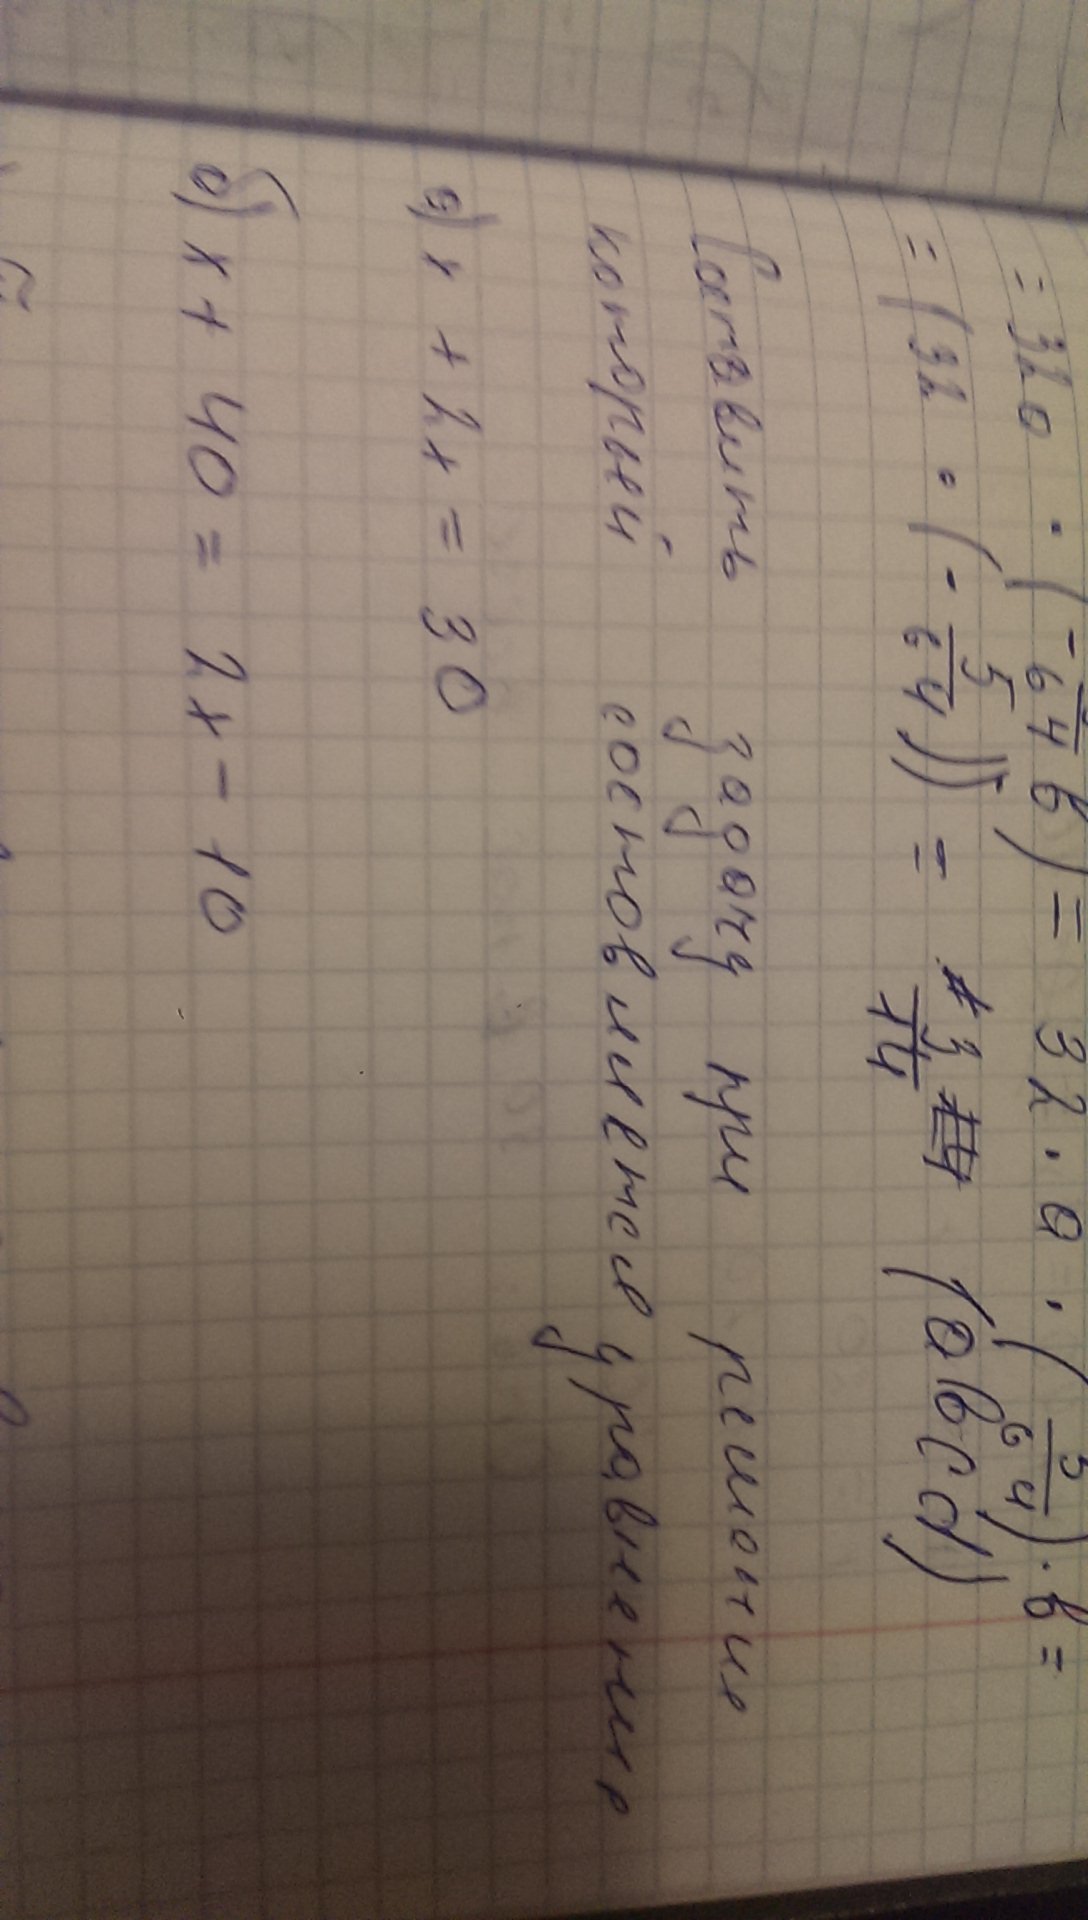 = 32a · (-5/64 b) = 32 · a · (5/64) · b =
= (32 · (-5/64)) = 3/14 (abcd)
Составить задачу при решении
которой составляется уравнение
а) x + 2x = 30
б) x + 40 = 2x - 10